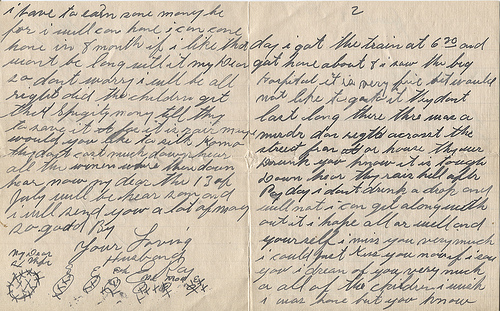 i have to earn some money be
for i will can home i can come
home in 8 month if i like that
wont be long will it my Dear
so dont worry i will be all
right did the children get
their money tell thy
to save it
would you like to silk Komo
thy dont cost much down hear
all the women wore them down
hear now my dear the 13 of
July will be hear soon and
i will send you a lot of money
so good By
Your Loving
Husband
My Dear
2
day i got the train at 6 30 and
got home about 8 i saw the big
hospital it is very fine but would
not like to go to it thy dont
last long there thre was a
murdr dor rigth acrosst the
street from our house thy wer
Drunk you know it is tough
Down hear thy rais hell after
Pay day i dont drink a drop and
will not i can get along with
out it i hope all ar well and
yourself i miss you very much
i could just kiss you now if i saw
you i dream of you very much
or all of the children i wish
i was home but you know